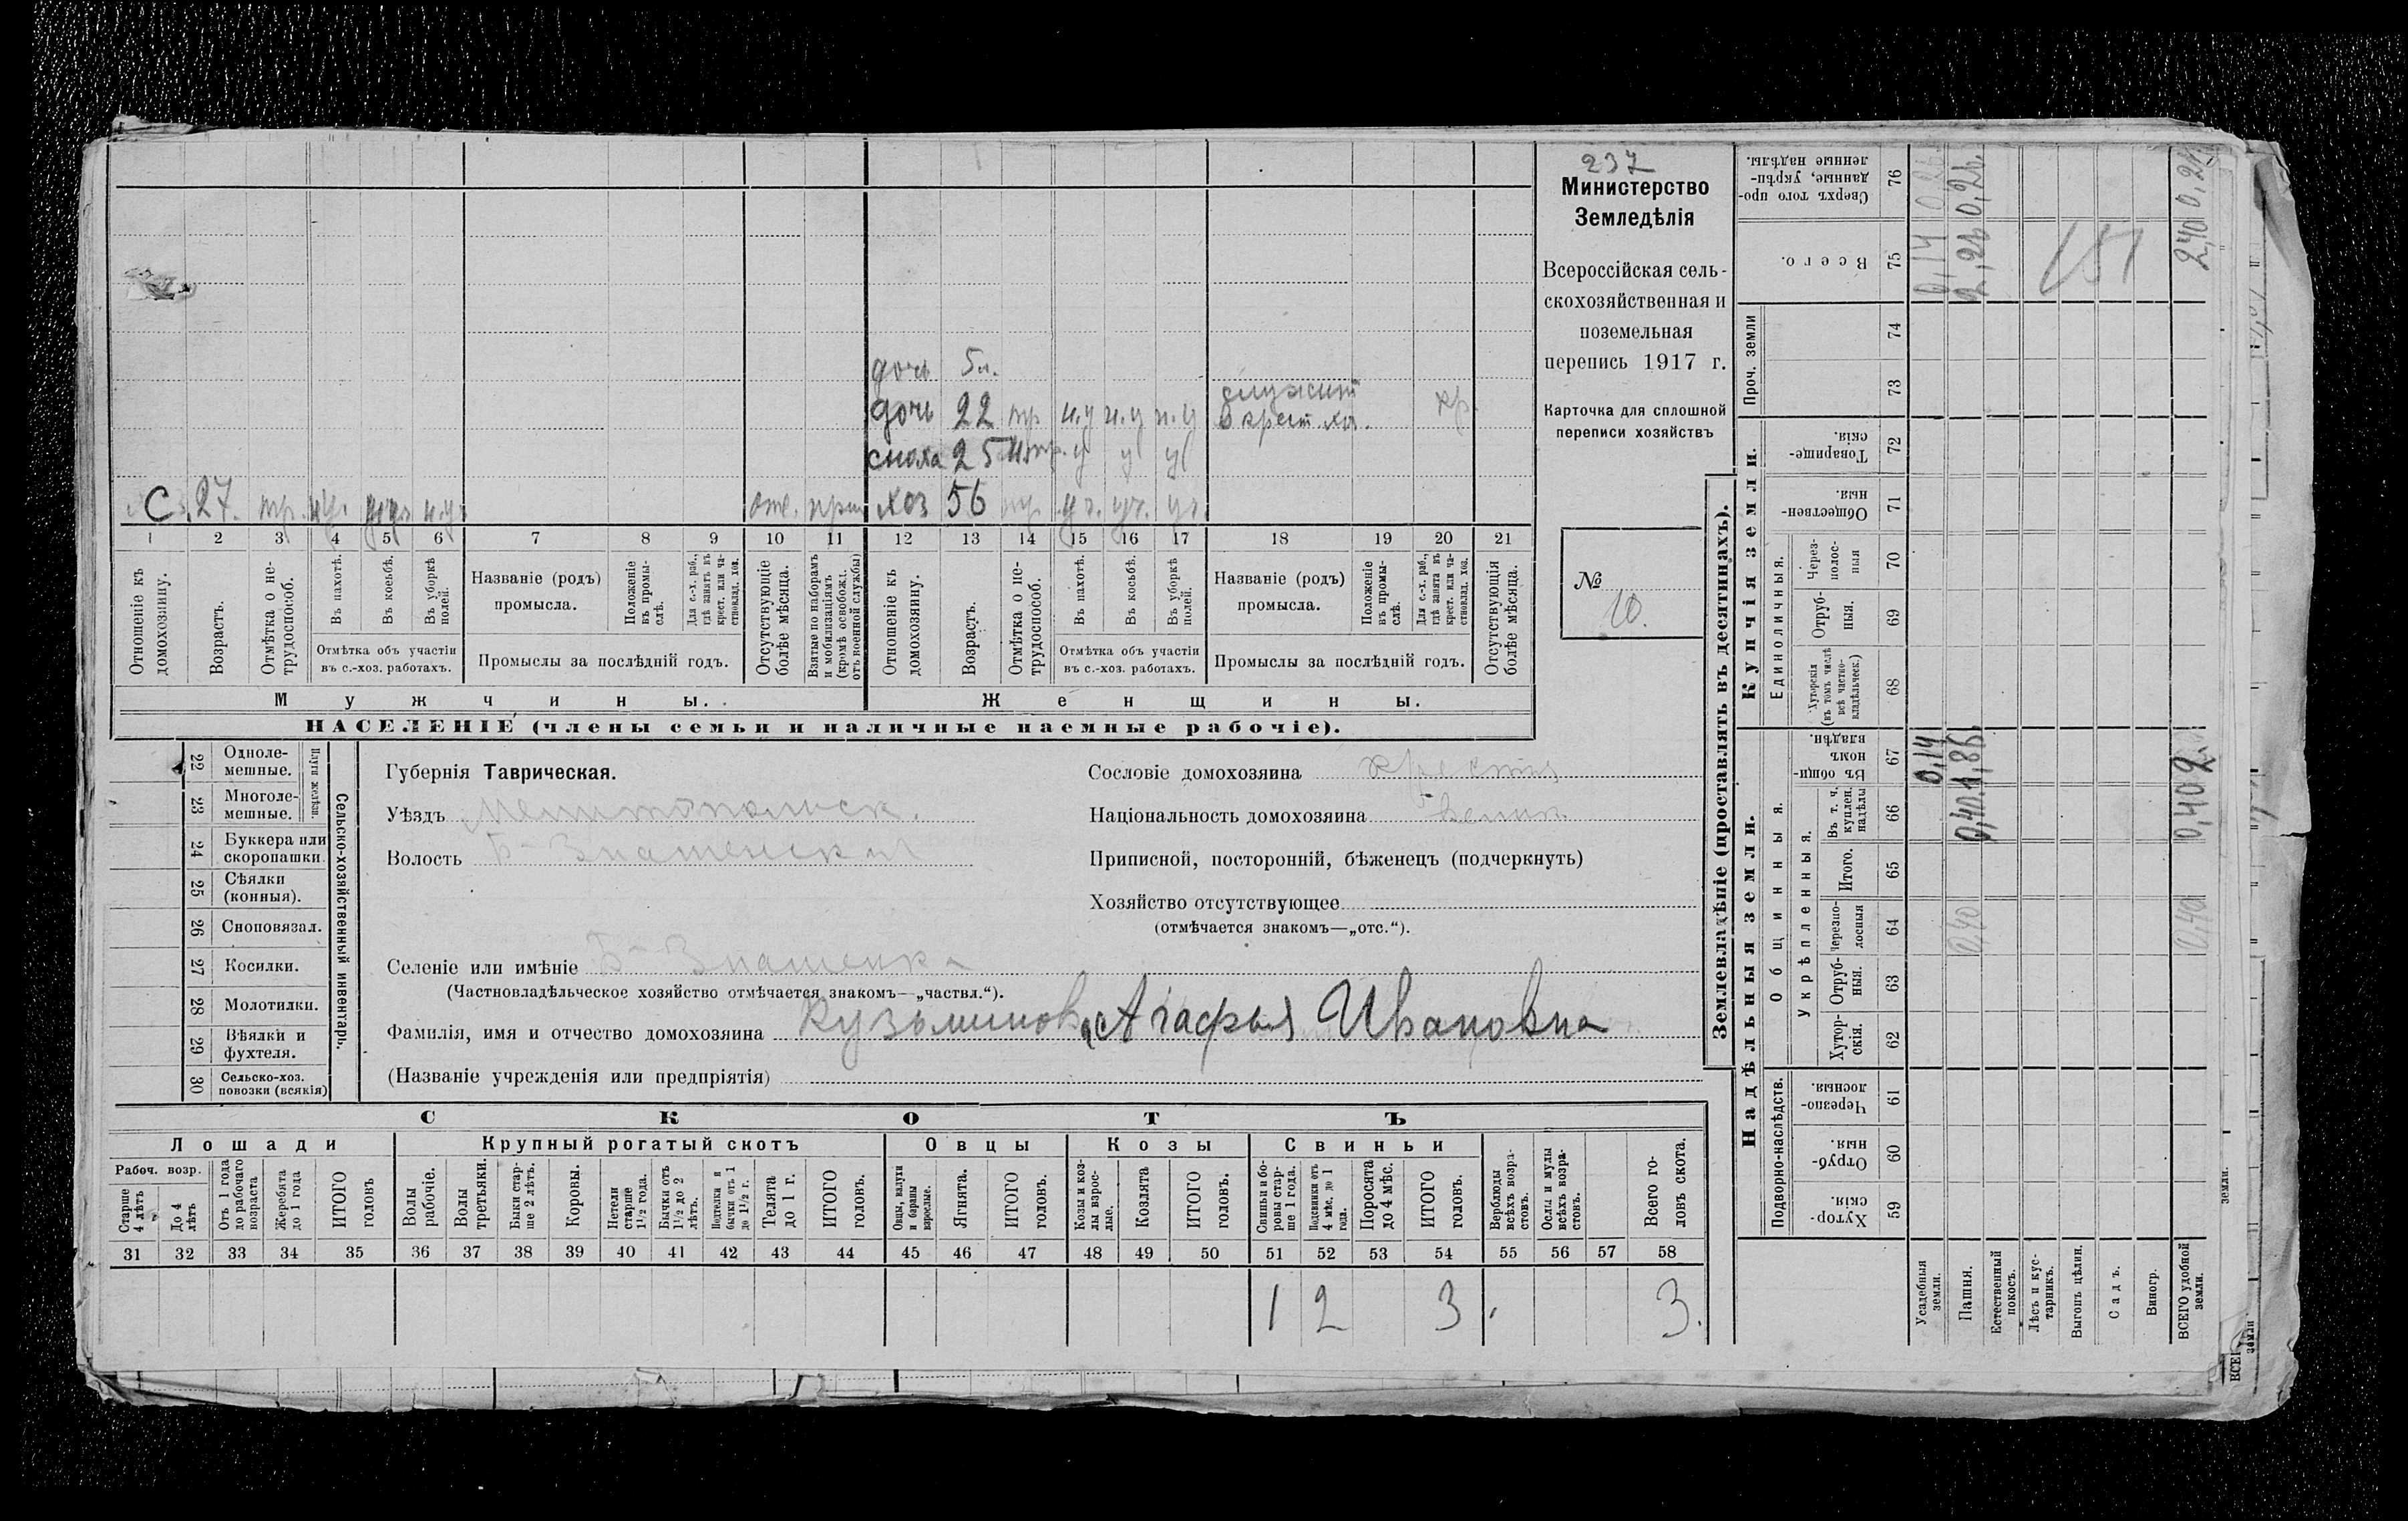 237
Министерство
Земледѣлія
Всероссійская сель-
скохозяйственная и
поземельная
перепись 1917 г.
Карточка для сплошной
переписи хозяйствъ
№
10.
дочь 5 л.
служит
дочь 22 тр н.у н.у н.у в крест. хоз. кр.
сноха 25 н.тр. у у у
С. 27. тр. н.у. н.у.
хоз 56 тр уч. уч. уч.
1 2 3 4 5 6 7 8 9 10 11 12 13 14 15 16 17 18 19 20 21
Отношеніе къ домохозяину.
Возрастъ.
Отмѣтка о не-трудоспособ.
Въ пахотѣ.
Въ косьбѣ.
Въ уборкѣ полей.
Отмѣтка объ участіи въ с.-хоз. работахъ.
Названіе (родъ) промысла.
Положеніе въ промы-слѣ.
Для с.-х. раб., гдѣ занятъ въ крест. или ча-стновлад. хоз.
Промыслы за послѣдній годъ.
Отсутствующіе болѣе мѣсяца.
Взятые по наборамъ и мобилизаціямъ (кромѣ освобожд. отъ военной службы)
Отношеніе къ домохозяину.
Возрастъ.
Отмѣтка о не-трудоспособ.
Въ пахотѣ.
Въ косьбѣ.
Въ уборкѣ полей.
Отмѣтка объ участіи въ с.-хоз. работахъ.
Названіе (родъ) промысла.
Положеніе въ промы-слѣ.
Для с.-х. раб., гдѣ занята въ крест. или ча-стновлад. хоз.
Промыслы за послѣдній годъ.
Отсутствующія болѣе мѣсяца.
Мужчины.
Женщины.
НАСЕЛЕНІЕ (члены семьи и наличные наемные рабочіе).
22 Одноле-мешные.
23 Многоле-мешные.
Плуги желѣзн.
24 Буккера или скоропашки.
25 Сѣялки (конныя).
26 Сноповязал.
27 Косилки.
28 Молотилки.
29 Вѣялки и фухтеля.
30 Сельско-хоз. повозки (всякія)
Сельско-хозяйственный инвентарь.
Губернія Таврическая.
Уѣздъ Мелитопольск.
Волость Б-Знаменская
Селеніе или имѣніе Б-Знаменка
(Частновладѣльческое хозяйство отмѣчается знакомъ—„частвл.“).
Фамилія, имя и отчество домохозяина Кузьминова Агафья Ивановна
(Названіе учрежденія или предпріятія)
Сословіе домохозяина крестья
Національность домохозяина Велик.
Приписной, посторонній, бѣженецъ (подчеркнуть)
Хозяйство отсутствующее
(отмѣчается знакомъ—„отс.“).
СКОТЪ
Лошади
Крупный рогатый скотъ
Овцы
Козы
Свиньи
Рабоч. возр.
Старше 4 лѣтъ
До 4 лѣтъ
Отъ 1 года до рабочаго возраста
Жеребята до 1 года
ИТОГО головъ
Волы рабочіе.
Волы третьяки.
Быки стар-ше 2 лѣтъ.
Коровы.
Нетели старше 1½ года.
Бычки отъ 1½ до 2 лѣтъ.
Подтелки и бычки отъ 1 до 1½ г.
Телята до 1 г.
ИТОГО головъ.
Овцы, валухи и бараны взрослые.
Ягнята.
ИТОГО головъ.
Козы и коз-лы взрос-лые.
Козлята
ИТОГО головъ.
Свиньи и бо-ровы стар-ше 1 года.
Подсвинки отъ 4 мѣс. до 1 года.
Поросята до 4 мѣс.
ИТОГО головъ.
Верблюды всѣхъ возра-стовъ.
Ослы и мулы всѣхъ возра-стовъ.
Всего го-ловъ скота.
31 32 33 34 35 36 37 38 39 40 41 42 43 44 45 46 47 48 49 50 51 52 53 54 55 56 57 58
1 2 3 3.
Землевладѣніе (проставлять въ десятинахъ).
Надѣльныя земли.
Купчія земли.
Подворно-наслѣдств.
Общинныя.
Укрѣпленныя.
Единоличныя.
Проч. земли
Хутор-скія. 59
Отруб-ныя. 60
Черезпо-лосныя. 61
Хутор-скія. 62
Отруб-ныя. 63
Черезпо-лосныя 64
Итого. 65
Въ т. ч. куплен. надѣлы 66
Въ общи-номъ владѣн. 67
Хуторскія (въ томъ числѣ всѣ частно-владѣльческ.) 68
Отруб-ныя. 69
Через-полос-ныя 70
Обществен-ныя. 71
Товарище-скія. 72
73
74
Всего. 75
Сверхъ того про-данные, укрѣп-ленные надѣлы. 76
Усадебныя земли. 0,14 0,14
Пашня. 0,40 0,40
Естественный покосъ.
Лѣсъ и кус-тарникъ.
Выгонъ цѣлин.
Садъ.
Виногр.
ВСЕГО удобной земли. 0,40 0,40 2 2,40
151
земли.